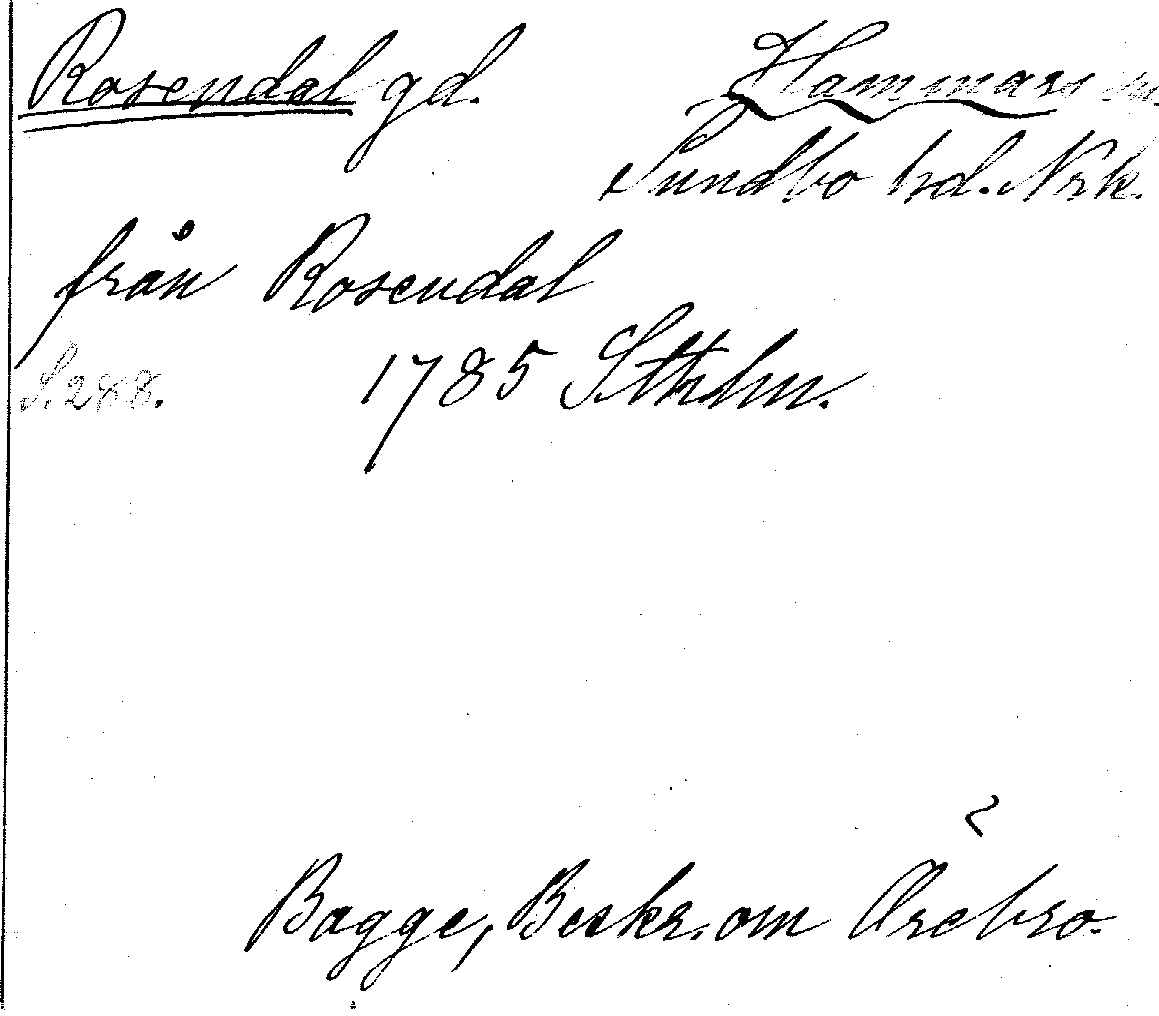 Rosendal gd. Hammars sn.
Sundbo hd. Nrk.
från Rosendal
S. 288. 1785 Sthlm.
Bagge, Beskr. om Örebro.